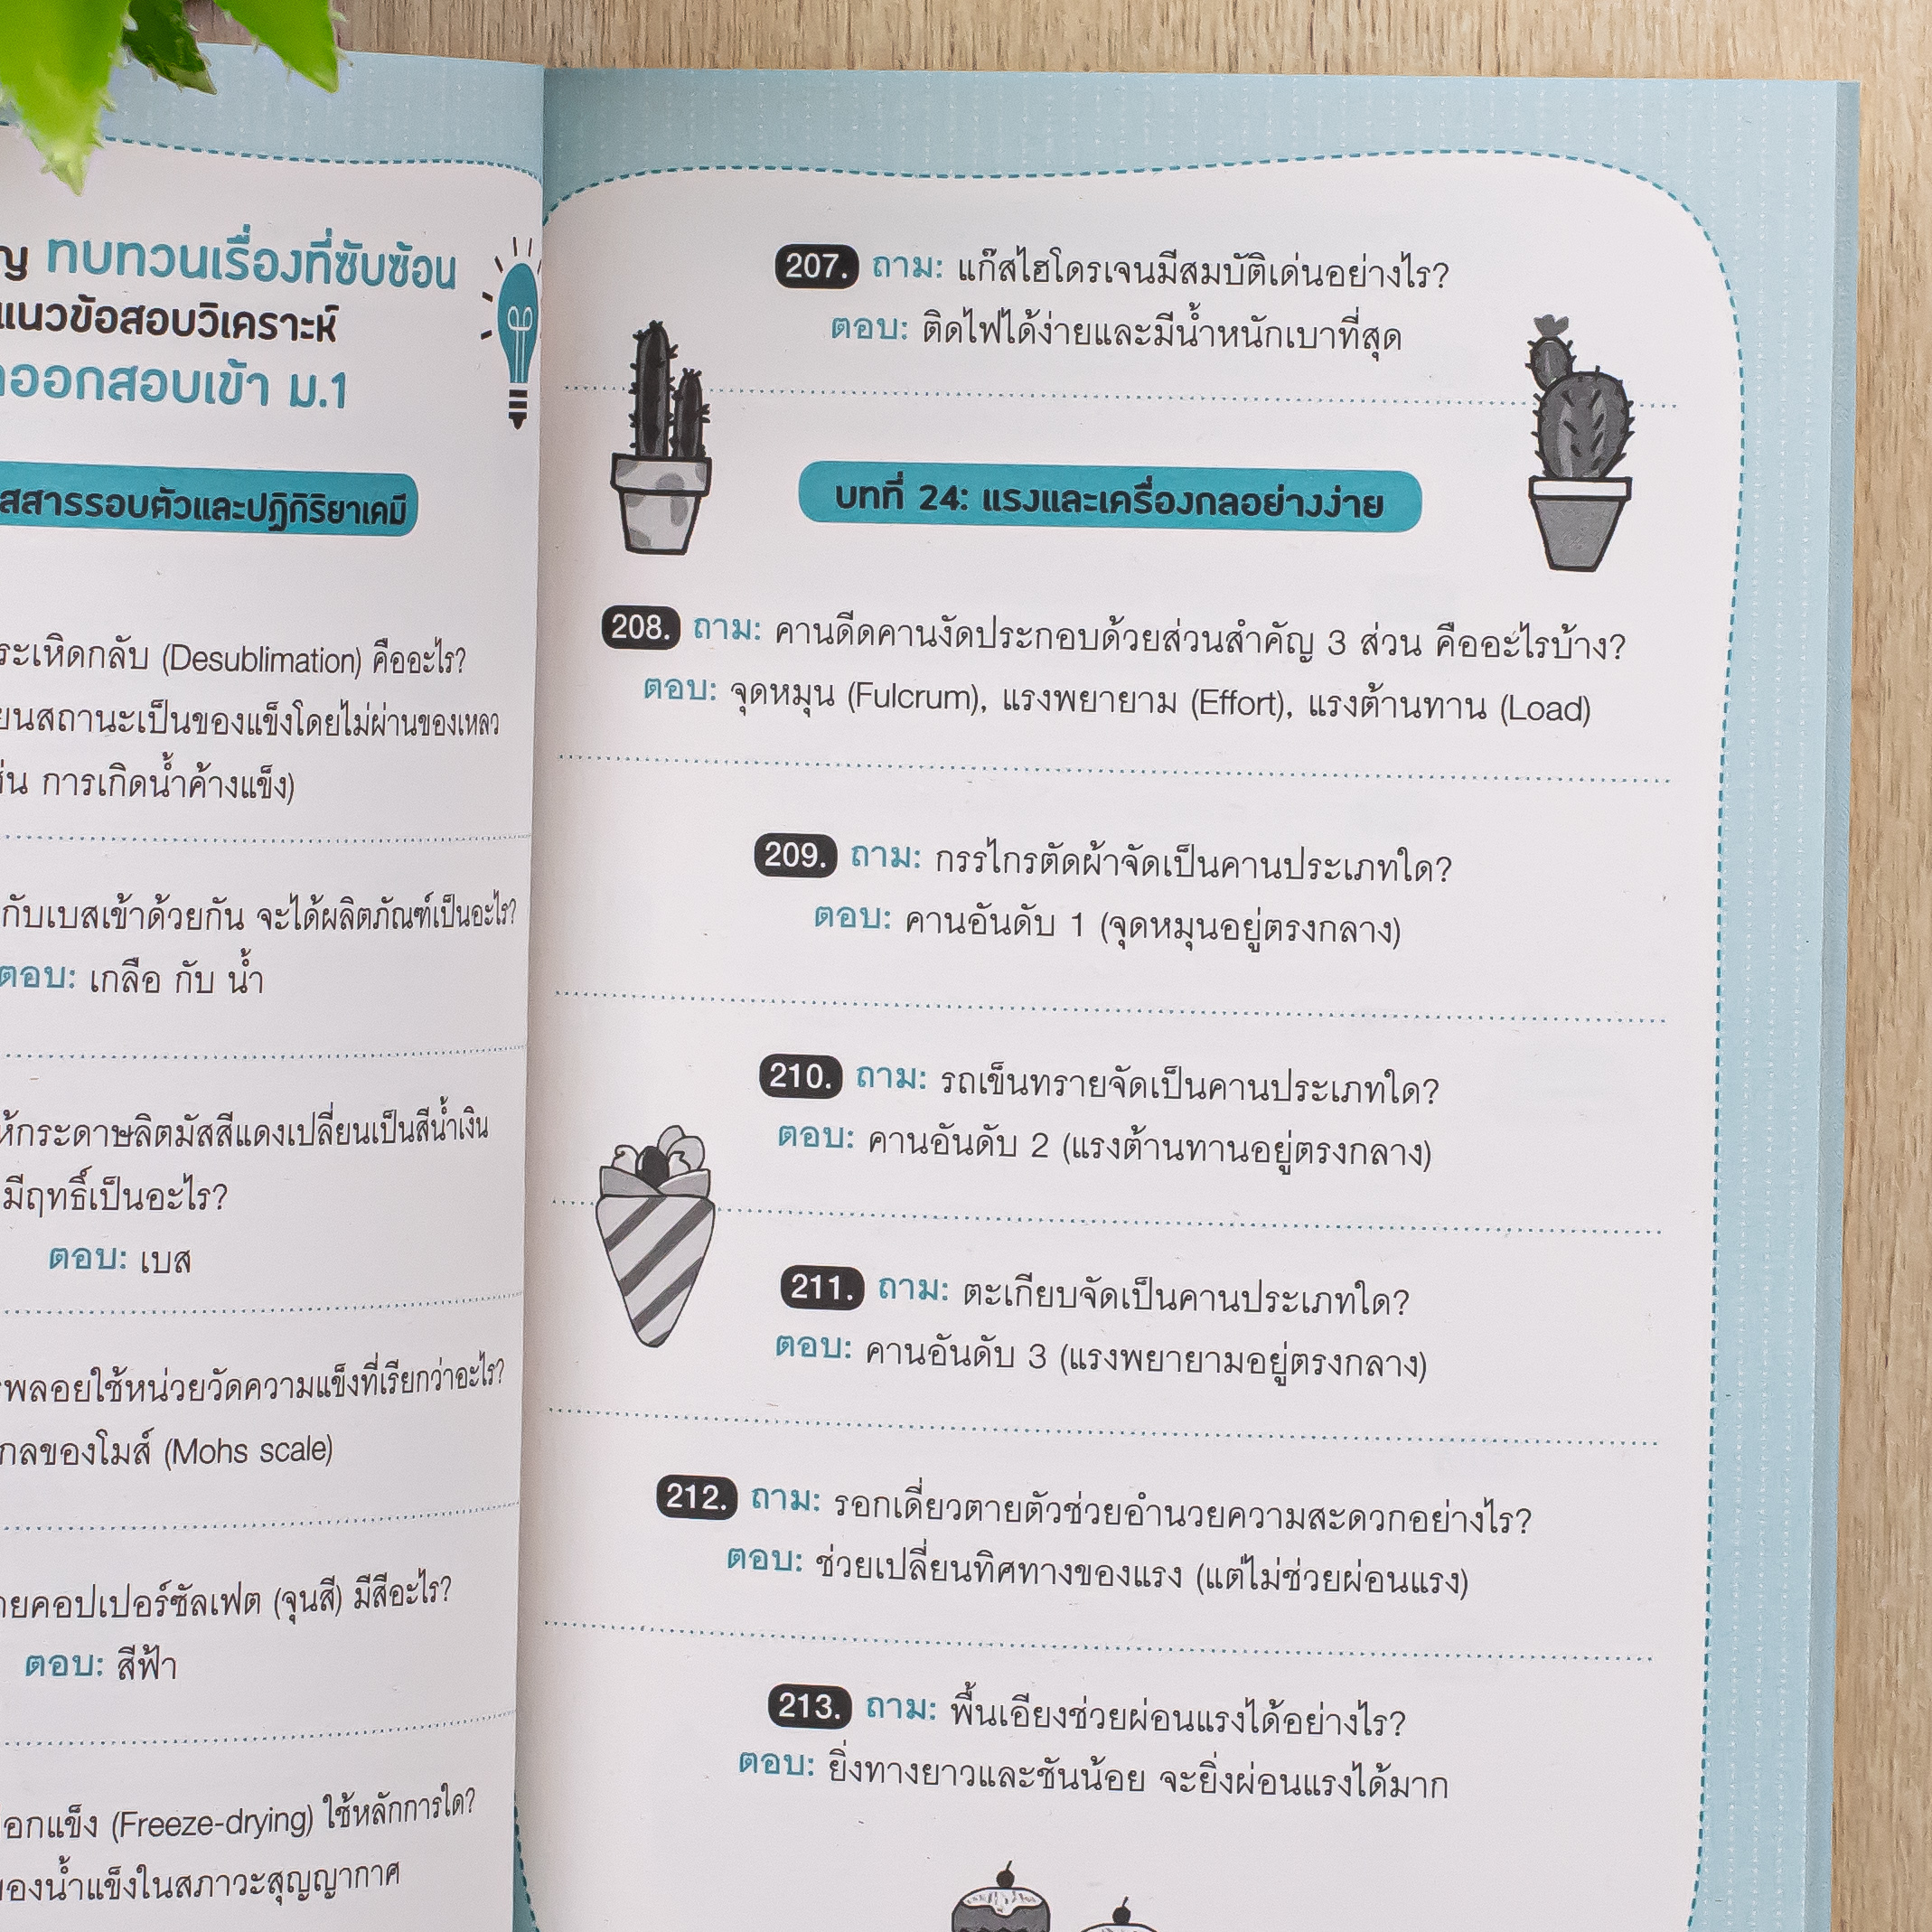 ทบทวนเรื่องที่ซับซ้อน
แนวข้อสอบวิเคราะห์
ออกสอบเข้า ม.1
สารรอบตัวและปฏิกิริยาเคมี
ระเหิดกลับ (Desublimation) คืออะไร?
สถานะเป็นของแข็งโดยไม่ผ่านของเหลว
การเกิดน้ำค้างแข็ง)
กับเบสเข้าด้วยกัน จะได้ผลิตภัณฑ์เป็นอะไร?
ตอบ: เกลือ กับ น้ำ
กระดาษลิตมัสสีแดงเปลี่ยนเป็นสีน้ำเงิน
มีฤทธิ์เป็นอะไร?
ตอบ: เบส
พลอยใช้หน่วยวัดความแข็งที่เรียกว่าอะไร?
ของโมส์ (Mohs scale)
คอปเปอร์ซัลเฟต (จุนสี) มีสีอะไร?
ตอบ: สีฟ้า
แข็ง (Freeze-drying) ใช้หลักการใด?
ของน้ำแข็งในสภาวะสุญญากาศ
207. ถาม: แก๊สไฮโดรเจนมีสมบัติเด่นอย่างไร?
ตอบ: ติดไฟได้ง่ายและมีน้ำหนักเบาที่สุด
บทที่ 24: แรงและเครื่องกลอย่างง่าย
208. ถาม: คานดีดคานงัดประกอบด้วยส่วนสำคัญ 3 ส่วน คืออะไรบ้าง?
ตอบ: จุดหมุน (Fulcrum), แรงพยายาม (Effort), แรงต้านทาน (Load)
209. ถาม: กรรไกรตัดผ้าจัดเป็นคานประเภทใด?
ตอบ: คานอันดับ 1 (จุดหมุนอยู่ตรงกลาง)
210. ถาม: รถเข็นทรายจัดเป็นคานประเภทใด?
ตอบ: คานอันดับ 2 (แรงต้านทานอยู่ตรงกลาง)
211. ถาม: ตะเกียบจัดเป็นคานประเภทใด?
ตอบ: คานอันดับ 3 (แรงพยายามอยู่ตรงกลาง)
212. ถาม: รอกเดี่ยวตายตัวช่วยอำนวยความสะดวกอย่างไร?
ตอบ: ช่วยเปลี่ยนทิศทางของแรง (แต่ไม่ช่วยผ่อนแรง)
213. ถาม: พื้นเอียงช่วยผ่อนแรงได้อย่างไร?
ตอบ: ยิ่งทางยาวและชันน้อย จะยิ่งผ่อนแรงได้มาก